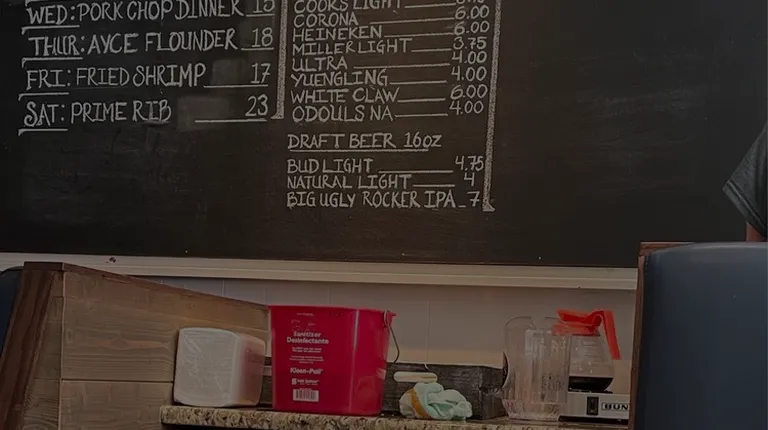 WED: PORK CHOP DINNER 15
THUR: AYCE FLOUNDER 18
FRI: FRIED SHRIMP 17
SAT: PRIME RIB 23
COORS LIGHT
CORONA 6.00
HEINEKEN 6.00
MILLER LIGHT 3.75
ULTRA 4.00
YUENGLING 4.00
WHITE CLAW 6.00
ODOULS NA 4.00
DRAFT BEER 16oz
BUD LIGHT 4.75
NATURAL LIGHT 4
BIG UGLY ROCKER IPA 7
Sanitizer
Desinfectante
Kleen-Pail
BUNN